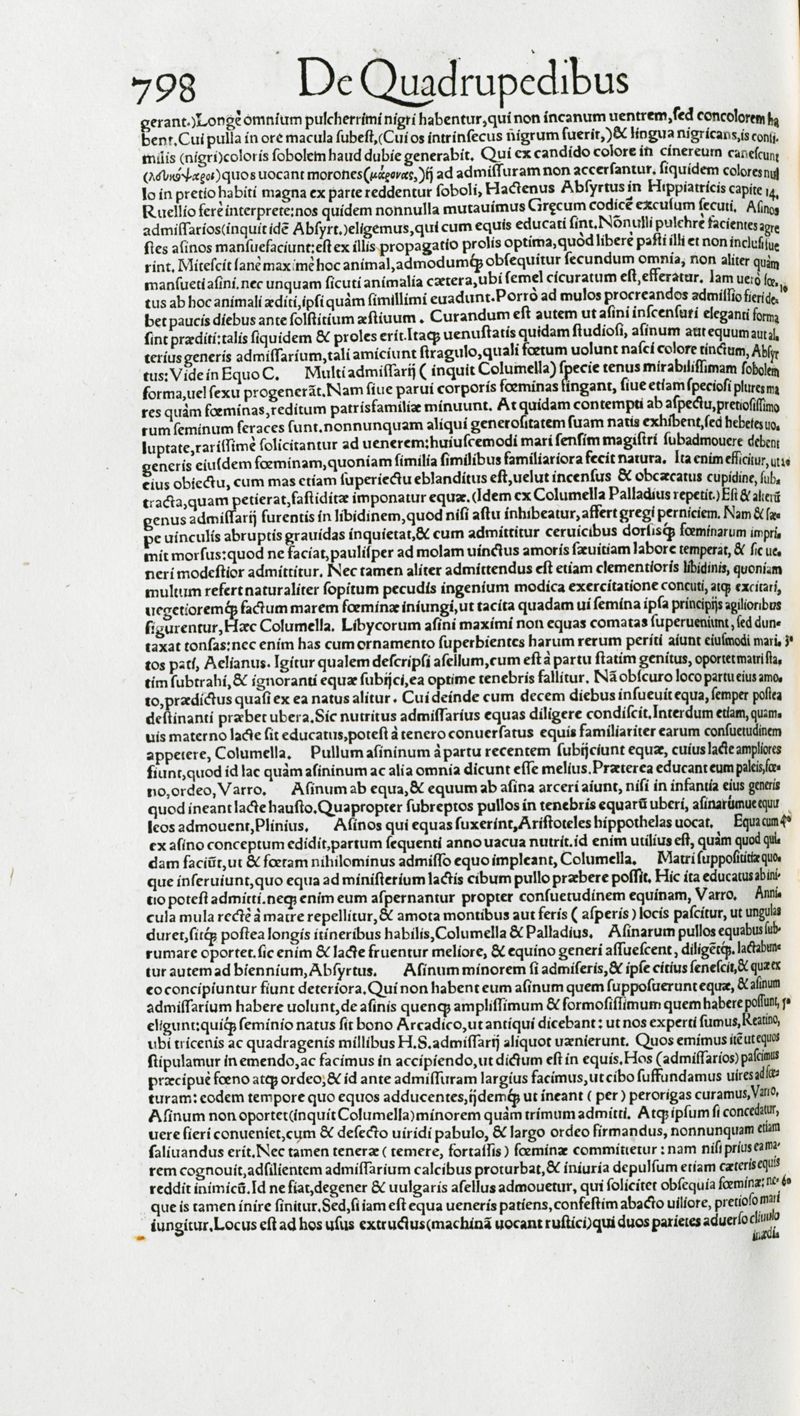 798 De Quadrupedibus
gerant.)Longè omnium pulcherrimi nigri habentur,qui non incanum uentrem,ſed concolorem ha
bent.Cui pulla in ore macula ſubeſt,(Cui os intrinſecus nigrum fuerit,)& lingua nigricans,is conſi-
milis (nigri)coloris ſobolem haud dubie generabit. Qui ex candido colore in cinereum caneſcunt
quos uocant morones(μάρονας,)ij ad admiſſuram non accerſantur. ſiquidem colores nul
lo in pretio habiti magna ex parte reddentur ſoboli, Hactenus Abſyrtus in Hippiatricis capite 14.
Ruellio ferè interprete:nos quidem nonnulla mutauimus Gręcum codicẽ excuſum ſecuti. Aſinos
admiſſarios(inquit idẽ Abſyrt.)eligemus,qui cum equis educati ſint.Nõnulli pulchrè facientes agre
ſtes aſinos manſuefaciunt:eſt ex illis propagatio prolis optima,quòd liberè paſti illi et non incluſi fue
rint. Miteſcit ſanè maximè hoc animal,admodumq́ꝫ obſequitur ſecundum omnia, non aliter quàm
manſueti aſini.nec unquam ſicuti animalia cætera,ubi ſemel cicuratum eſt,efferatur. Iam uerò fœ- 10
tus ab hoc animali æditi,ipſi quàm ſimillimi euadunt.Porrò ad mulos procreandos admiſſio fieri de-
bet paucis diebus ante ſolſtitium æſtiuum. Curandum eſt autem ut aſini inſcenſuri eleganti forma
ſint præditi:talis ſiquidem & proles erit.Itaqꝫ uenuſtatis quidam ſtudioſi, aſinum aut equum aut al-
terius generis admiſſarium,tali amiciunt ſtragulo,quali fœtum uolunt naſci colore tinctum, Abſyr
tus:Vide in Equo C. Multi admiſſarij ( inquit Columella) ſpecie tenus mirabiliſſimam ſobolem
forma,uel ſexu progenerãt.Nam ſiue parui corporis fœminas fingant, ſiue etiam ſpecioſi plures ma
res quàm fœminas,reditum patrisfamiliæ minuunt. At quidam contempti ab aſpectu,pretioſiſſimo
rum ſeminum feraces ſunt.nonnunquam aliqui generoſitatem ſuam natis exhibent,ſed hebetes uo-
luptate,rariſſimè ſolicitantur ad uenerem:huiuſcemodi mari ſenſim magiſtri ſubadmouere debent
generis eiuſdem fœminam,quoniam ſimilia ſimilibus familiariora fecit natura. Ita enim efficitur, ut 20
eius obiectu, cum mas etiam ſuperiectu eblanditus eſt,uelut incenſus & obcæcatus cupidine, ſub-
tracta,quam petierat,faſtiditæ imponatur equæ.(Idem ex Columella Palladius repetit.) Eſt & alterũ
genus admiſſarij furentis in libidinem,quod niſi aſtu inhibeatur,affert gregi perniciem. Nam & ſæ-
pe uinculis abruptis grauidas inquietat,& cum admittitur ceruicibus dorſisq́ꝫ fœminarum impri-
mit morſus:quod ne faciat,pauliſper ad molam uinctus amoris ſæuitiam labore temperat, & ſic ue-
neri modeſtior admittitur. Nec tamen aliter admittendus eſt etiam clementioris libidinis, quoniam
multum refert naturaliter ſopitum pecudis ingenium modica exercitatione concuti, atqꝫ excitari,
uegetioremq́ꝫ factum marem fœminæ iniungi,ut tacita quadam ui ſemina ipſa principijs agilioribus
figurentur,Hæc Columella. Libycorum aſini maximi non equas comatas ſuperueniunt, ſed dun-
taxat tonſas:nec enim has cum ornamento ſuperbientes harum rerum periti aiunt eiuſmodi mari- 30
tos pati, Aelianus. Igitur qualem deſcripſi aſellum,cum eſt à partu ſtatim genitus, oportet matri ſta-
tim ſubtrahi,& ignoranti equæ ſubijci,ea optime tenebris fallitur. Nã obſcuro loco partu eius amo-
to,prædictus quaſi ex ea natus alitur. Cui deinde cum decem diebus inſueuit equa, ſemper poſtea
deſtinanti præbet ubera.Sic nutritus admiſſarius equas diligere condiſcit.Interdum etiam,quam-
uis materno lacte ſit educatus,poteſt à tenero conuerſatus equis familiariter earum conſuetudinem
appetere, Columella. Pullum aſininum à partu recentem ſubijciunt equæ, cuius lacte ampliores
fiunt,quod id lac quàm aſininum ac alia omnia dicunt eſſe melius.Præterea educant eum paleis,fœ-
no,ordeo,Varro. Aſinum ab equa,& equum ab aſina arceri aiunt, niſi in infantia eius generis
quod ineant lacte hauſto.Quapropter ſubreptos pullos in tenebris equarũ uberi, aſinarúmue equu
leos admouent,Plinius. Aſinos qui equas ſuxerint,Ariſtoteles hippothelas uocat. Equa cum 40
ex aſino conceptum edidit,partum ſequenti anno uacua nutrit.id enim utilius eſt, quàm quod qui-
dam faciũt,ut & fœtam nihilominus admiſſo equo impleant, Columella. Matri ſuppoſititiæ quo-
que inſeruiunt,quo equa ad miniſterium lactis cibum pullo præbere poſſit. Hic ita educatus ab ini-
tio poteſt admitti.neqꝫ enim eum aſpernantur propter conſuetudinem equinam, Varro. Anni-
cula mula rectè à matre repellitur,& amota montibus aut feris ( aſperis ) locis paſcitur, ut ungulas
duret,ſitq́ꝫ poſtea longis itineribus habilis,Columella & Palladius. Aſinarum pullos equabus ſub-
rumare oportet.ſic enim & lacte fruentur meliore, & equino generi aſſueſcent, diligẽtq́ꝫ. lactabun-
tur autem ad biennium,Abſyrtus. Aſinum minorem ſi admiſeris,& ipſe citius ſeneſcit,& quæ ex
eo concipiuntur fiunt deteriora.Qui non habent eum aſinum quem ſuppoſuerunt equæ, & aſinum
admiſſarium habere uolunt,de aſinis quenqꝫ ampliſſimum & formoſiſſimum quem habere poſſunt, 50
eligunt:quiq́ꝫ ſeminio natus ſit bono Arcadico,ut antiqui dicebant: ut nos experti ſumus, Reatino,
ubi tricenis ac quadragenis millibus H.S.admiſſarij aliquot uænierunt. Quos emimus itẽ ut equos
ſtipulamur in emendo,ac facimus in accipiendo,ut dictum eſt in equis.Hos (admiſſarios) paſcimus
præcipuè fœno atqꝫ ordeo,& id ante admiſſuram largius facimus,ut cibo ſuffundamus uires ad fœ-
turam: eodem tempore quo equos adducentes,ijdemq́ꝫ ut ineant ( per ) perorigas curamus,Varro.
Aſinum non oportet(inquit Columella)minorem quàm trimum admitti. Atqꝫ ipſum ſi concedatur,
uere fieri conueniet,cum & defecto uiridi pabulo, & largo ordeo firmandus, nonnunquam etiam
ſaliuandus erit.Nec tamen teneræ ( temere, fortaſſis ) fœminæ committetur : nam niſi prius ea ma-
rem cognouit,adſilientem admiſſarium calcibus proturbat,& iniuria depulſum etiam cæteris equis
reddit inimicũ.Id ne fiat,degener & uulgaris aſellus admouetur, qui ſolicitet obſequia fœminæ: ne- 60
que is tamen inire ſinitur.Sed,ſi iam eſt equa ueneris patiens,confeſtim abacto uiliore, pretioſo mari
iungitur.Locus eſt ad hos uſus extructus(machinã uocant ruſtici)qui duos parietes aduerſo cliuulo
inædi-